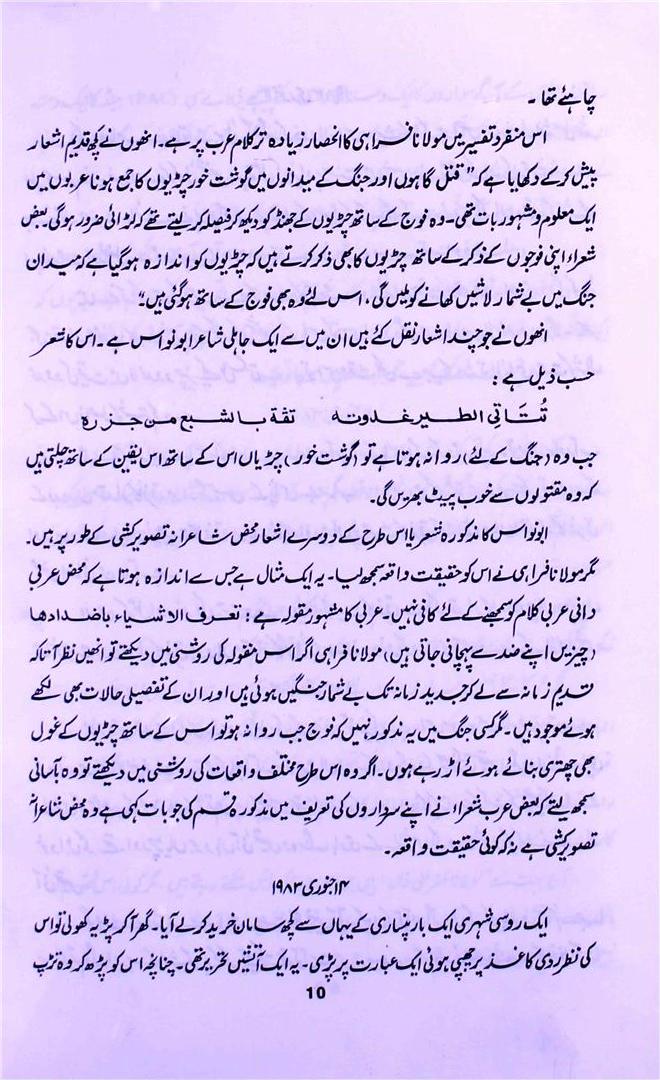 چاہئے تھا ۔
اس منفرد تفسیر میں مولانا فراہی کا انحصار زیادہ تر کلام عرب پر ہے۔ انھوں نے کچھ قدیم اشعار
پیش کرکے دکھایا ہے کہ " قتل گاہوں اور جنگ کے میدانوں میں گوشت خور چڑیوں کا جمع ہونا عربوں میں
ایک معلوم و مشہور بات تھی۔ وہ فوج کے ساتھ چڑیوں کے جھنڈ کو دیکھ کر فیصلہ کر لیتے تھے کہ لڑائی ضرور ہوگی۔ بعض
شعراء اپنی فوجوں کے ذکر کے ساتھ چڑیوں کا بھی ذکر کرتے ہیں کہ چڑیوں کو اندازہ ہوگیا ہے کہ میدان
جنگ میں بے شمار لاشیں کھانے کو ملیں گی، اس لئے وہ بھی فوج کے ساتھ ہوگئی ہیں"
انھوں نے جو چند اشعار نقل کئے ہیں ان میں سے ایک جاہلی شاعر ابو نواس ہے ۔ اس کا شعر
حسب ذیل ہے :
تُتَاتِی الطیر غدوتہ    تقة بالشبع من جزرہ
جب وہ (جنگ کے لئے) روانہ ہوتا ہے تو (گوشت خور) چڑیاں اس کے ساتھ اس یقین کے ساتھ چلتی ہیں
کہ وہ مقتولوں سے خوب پیٹ بھریں گی۔
ابو نواس کا مذکورہ شعر یا اس طرح کے دوسرے اشعار محض شاعرانہ تصویر کشی کے طور پر ہیں۔
مگر مولانا فراہی نے اس کو حقیقت واقعہ سمجھ لیا۔ یہ ایک مثال ہے جس سے اندازہ ہوتا ہے کہ محض عربی
دانی عربی کلام کو سمجھنے کے لئے کافی نہیں۔ عربی کا مشہور مقولہ ہے : تعرف الاشیاء باضدادها
(چیزیں اپنے ضد سے پہچانی جاتی ہیں) مولانا فراہی اگر اس مقولہ کی روشنی میں دیکھتے تو انھیں نظر آتا کہ
قدیم زمانہ سے لے کر جدید زمانہ تک بے شمار جنگیں ہوئی ہیں اور ان کے تفصیلی حالات بھی لکھے
ہوئے موجود ہیں۔ مگر کسی جنگ میں یہ مذکور نہیں کہ فوج جب روانہ ہو تو اس کے ساتھ چڑیوں کے غول
بھی چھتری بنائے ہوئے اڑ رہے ہوں۔ اگر وہ اس طرح مختلف واقعات کی روشنی میں دیکھتے تو وہ بآسانی
سمجھ لیتے کہ بعض عرب شعراء نے اپنے سرداروں کی تعریف میں مذکورہ قسم کی جو بات کہی ہے وہ محض شاعرانہ
تصویر کشی ہے نہ کہ کوئی حقیقت واقعہ۔
۱۴ جنوری ۱۹۸۳
ایک روسی شہری ایک بار پنساری کے یہاں سے کچھ سامان خرید کر لے آیا۔ گھر آکر پڑیہ کھولی تو اس
کی نظر ردی کاغذ پر چھپی ہوئی ایک عبارت پر پڑی۔ یہ ایک آتشیں تحریر تھی۔ چنانچہ اس کو پڑھ کر وہ تڑپ
10